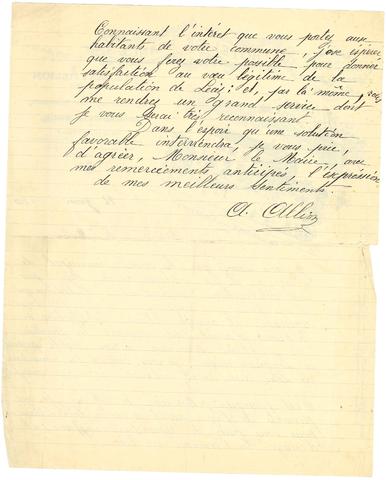 Connaissant l'intéret que vous portez aux
habitants de votre commune, j'ose espérer
que vous ferez votre possible pour donner
satisfaction au vœu légitime de la
population de Léaz; et, par là même, vous
me rendrez un grand service dont
je vous serai très reconnaissant.
Dans l'espoir qu'une solution
favorable interviendra, je vous prie,
d'agréer, Monsieur le Maire, avec
mes remerciements anticipés, l'expression
de mes meilleurs sentiments.
A.